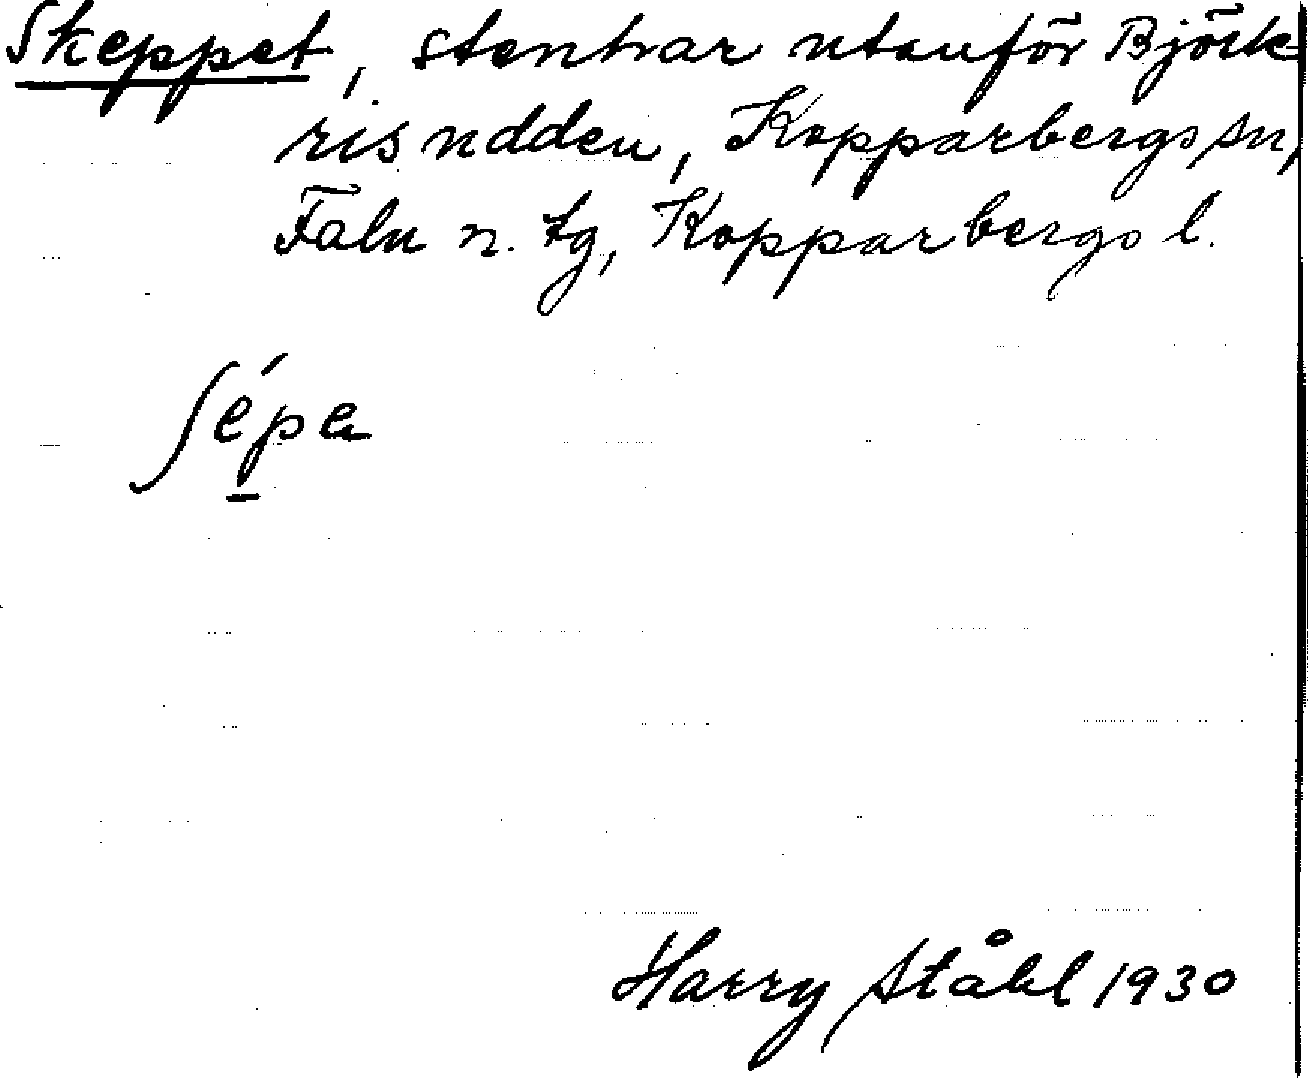 Skeppet, stenhar utanför Björk
risudden, Kopparbergs sn,
Falu n. tg, Kopparbergs l.
ʃépa
Harry Ståhl 1930